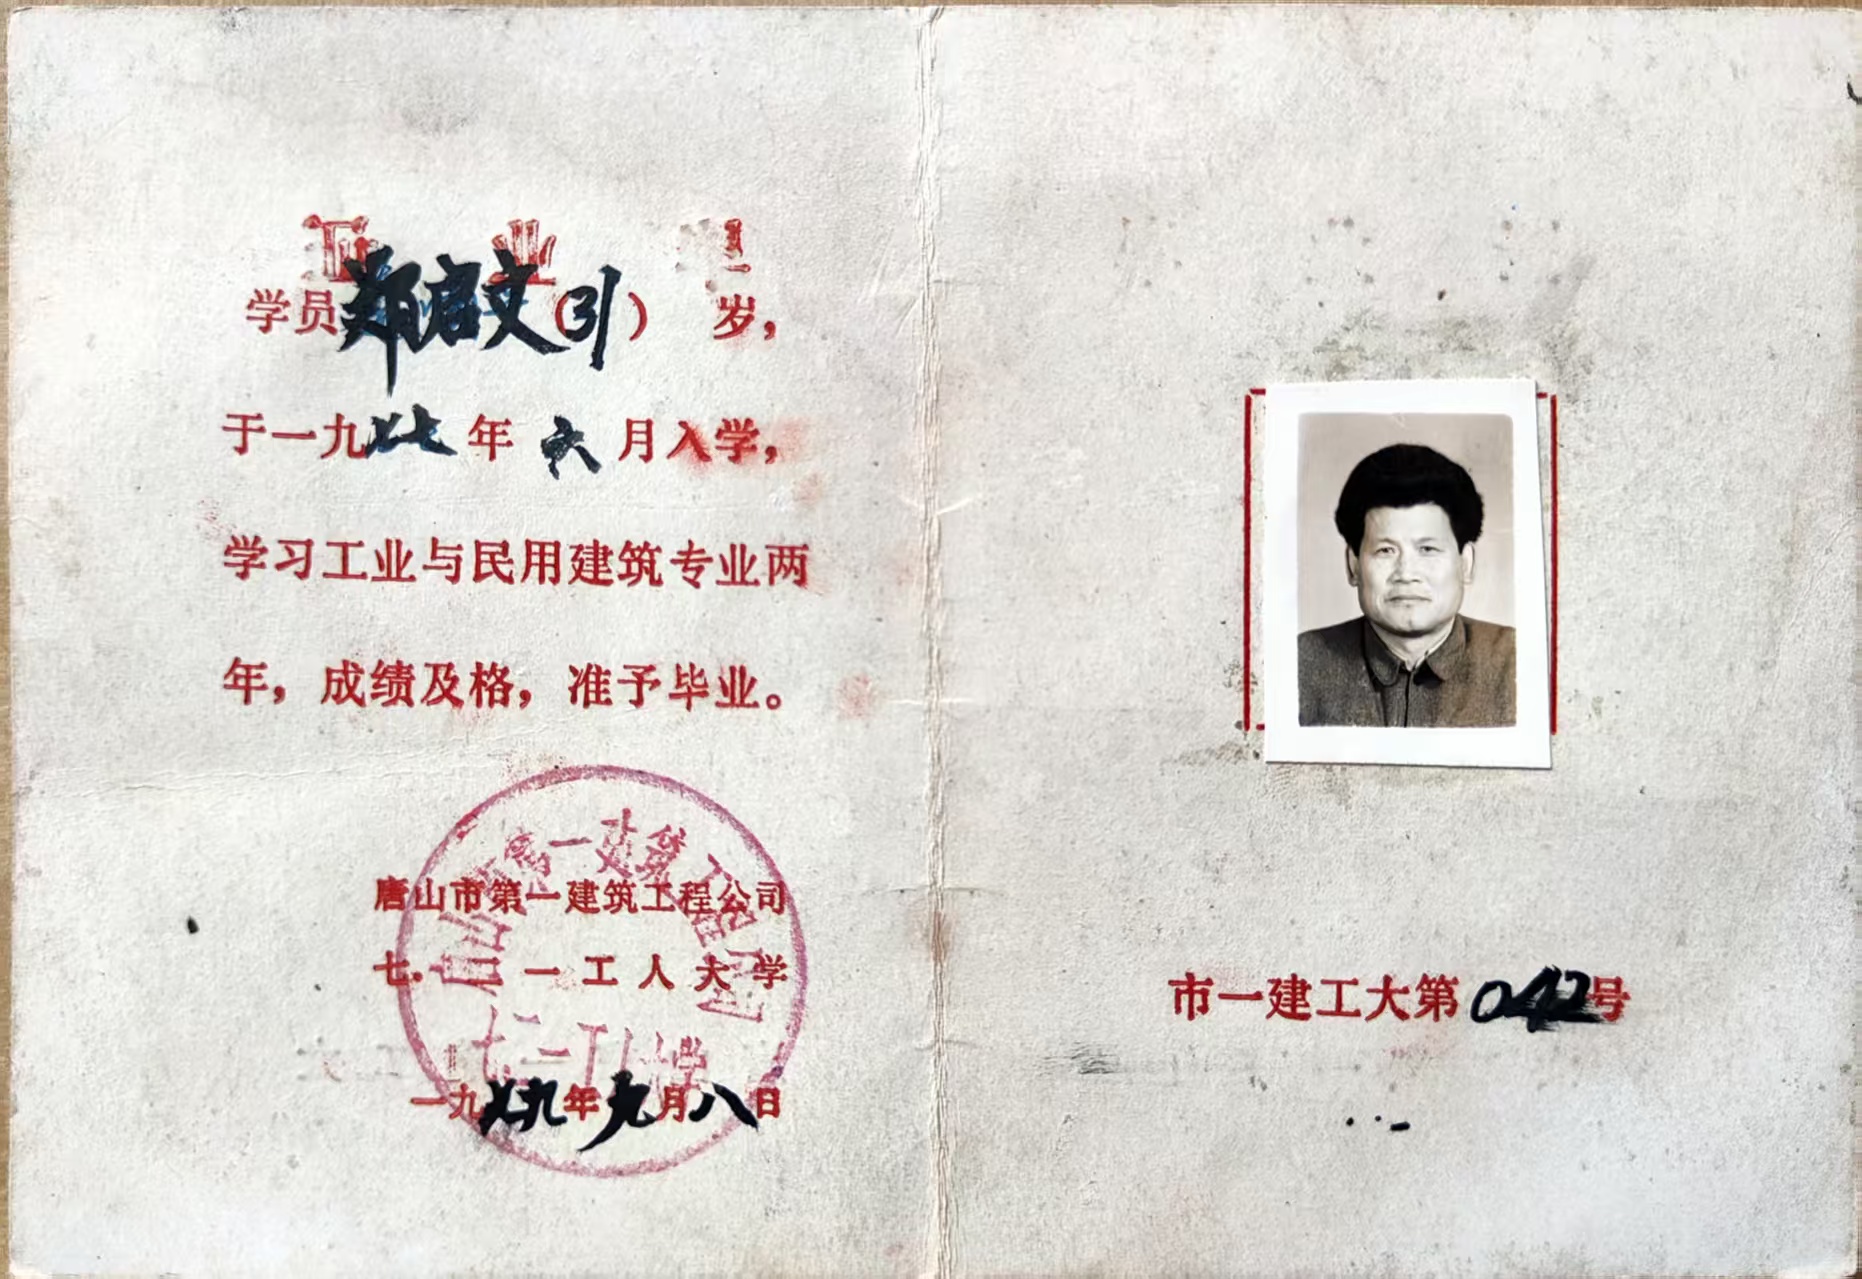 学员郑启文(31) 岁，
于一九七七年六月入学，
学习工业与民用建筑专业两
年，成绩及格，准予毕业。
唐山市第一建筑工程公司
七·二一工人大学
一九七九年九月八日
市一建工大第042号